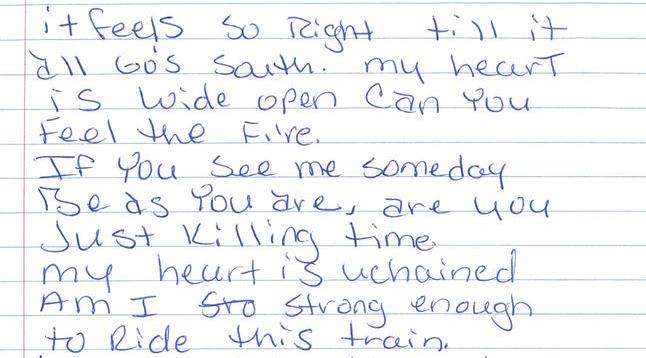 it feels so Right till it
all Go's South. my hearT
is wide open Can You
Feel the Fire.
If You See me someday
Be as You are, are you
Just Killing time.
my heart is uchained
Am I Sto strong enough
to Ride this train.